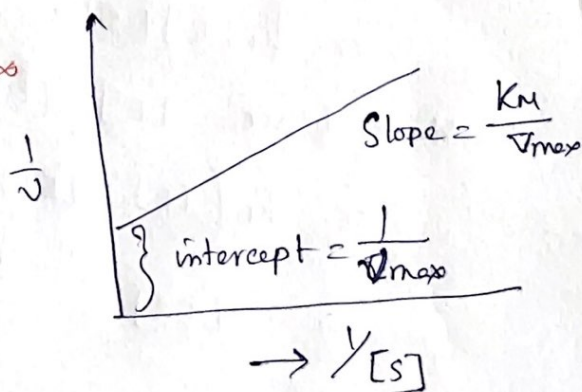 1/v
Slope = KM/Vmax
intercept = 1/Vmax
→ 1/[S]